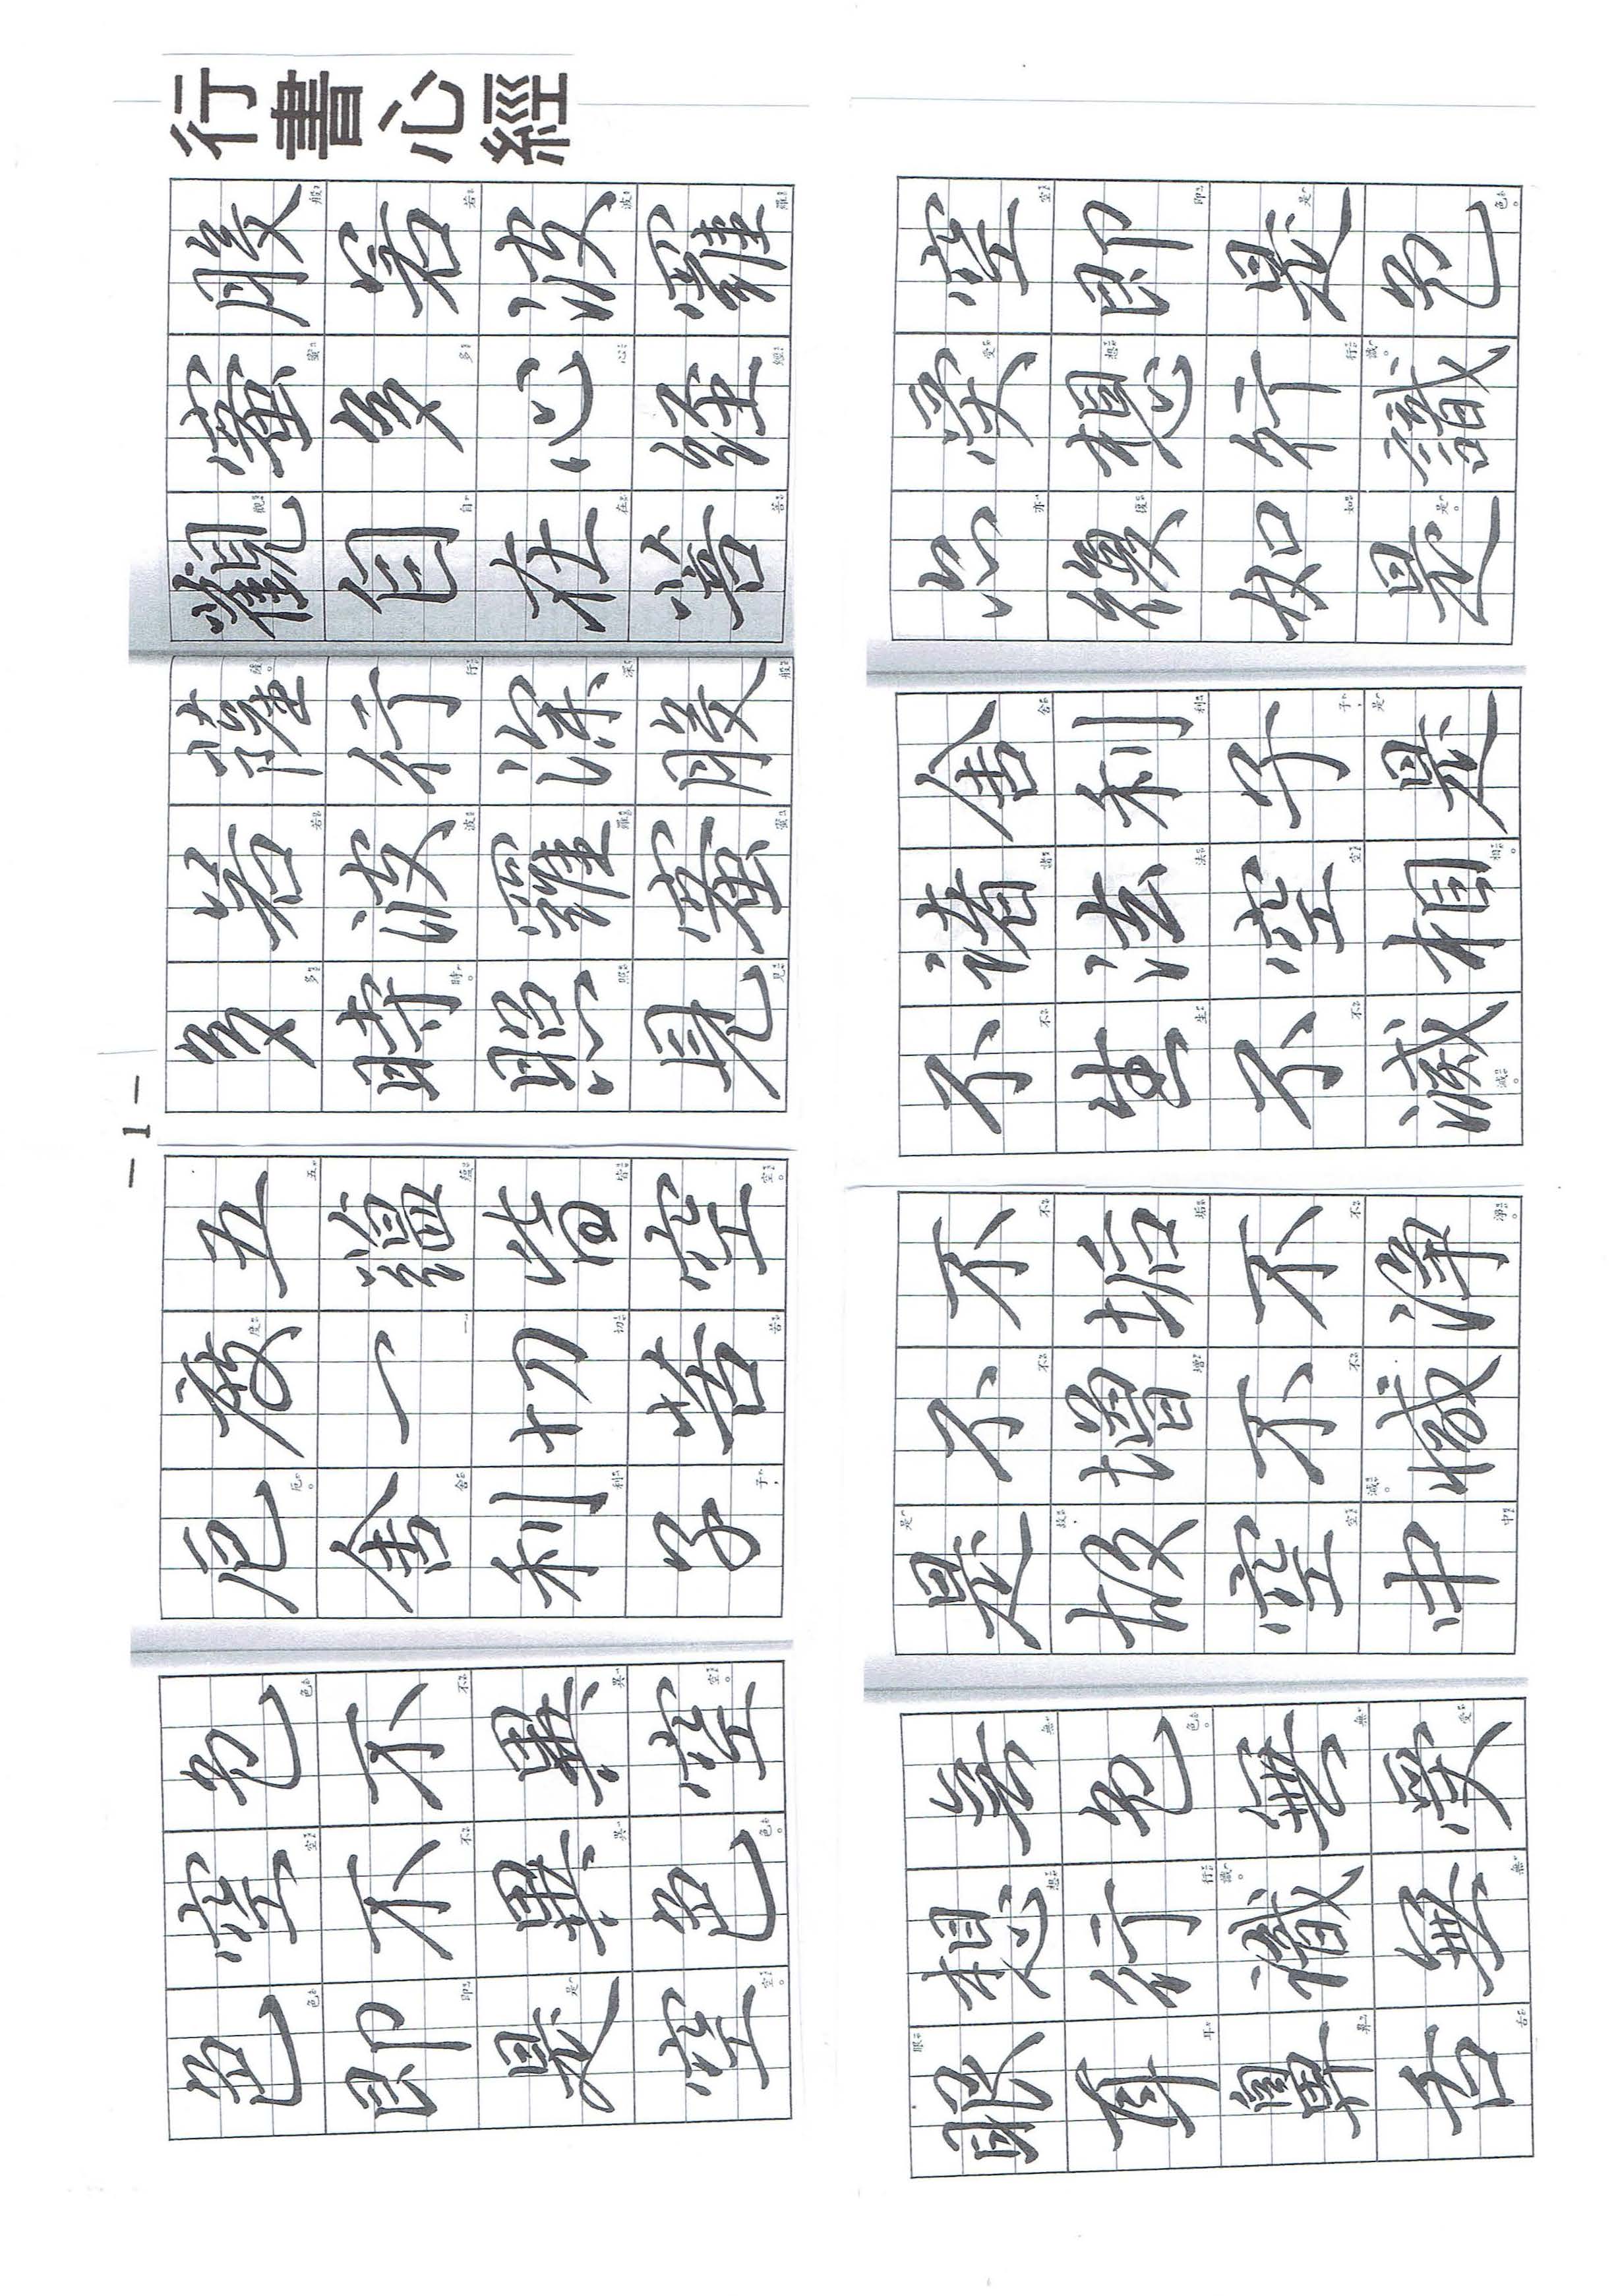 行書心經
般若波羅
蜜多心經
觀自在菩
薩行深般
若波羅蜜
多時照見
五蘊皆空
度一切苦
厄舍利子
色不異空
空不異色
色即是空
空即是色
受想行識
亦復如是
舍利子是
諸法空相
不生不滅
不垢不淨
不增不減
是故空中
無色無受
想行識無
眼耳鼻舌
- 1 -